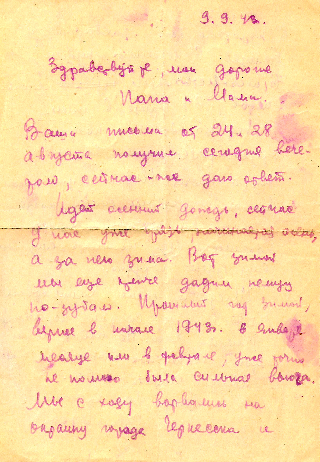 9.9.43.
Здравствуйте, мои дорогие
Папа и Мама!
Ваши письма от 24 и 28
августа получил сегодня вече-
ром, сейчас же даю ответ.
Идет осенний дождь, сейчас
у нас уже грязь
а за нею зима. Вот зимой
мы еще крепче дадим немцу
по-зубам. Прошлый год зимой,
вернее в начале 1943г. в январе
месяце или в феврале, уже точно
не помню была сильная вьюга.
Мы с ходу ворвались на
окраину города Черкесска и